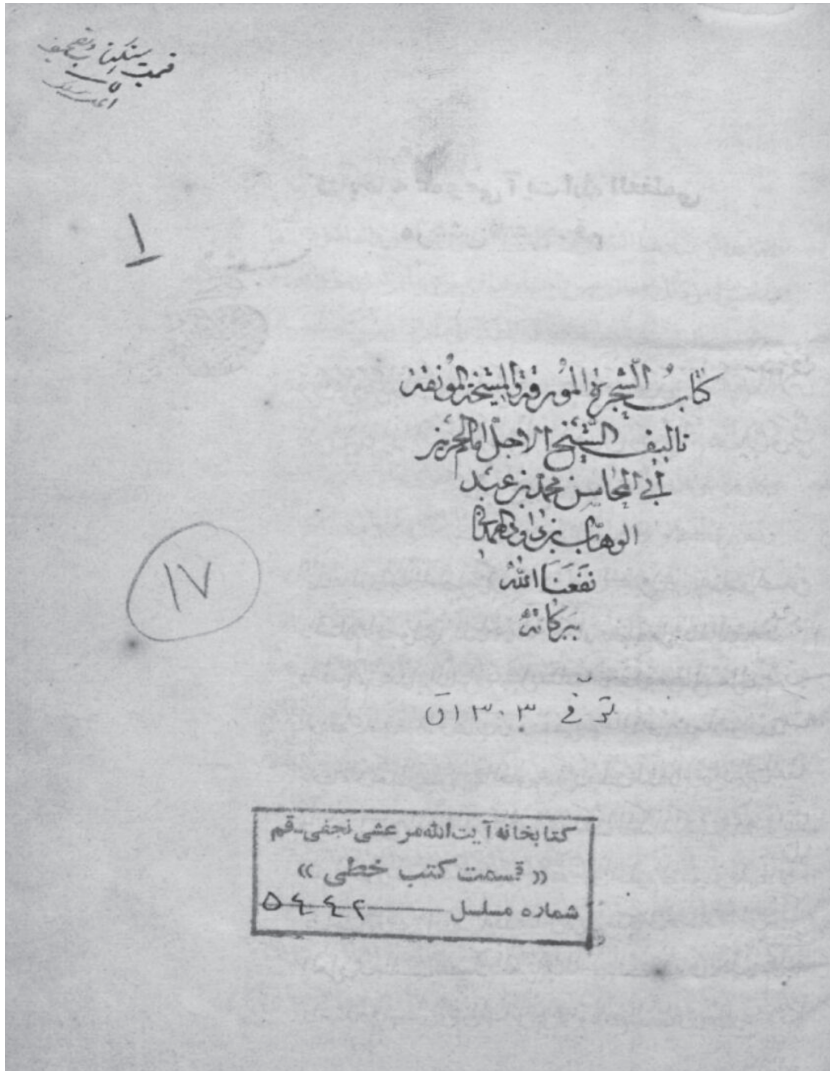 قیمت
١
كتابُ الشجرة المُورقة والمشيخة المونقة
تاليف الشيخ الاجل امام الحرمين
أبي المحاسن محمد بن عبد
الوهاب بن داود الهمداني
نفعنا الله
ببركاته
١٧
توفي ١٣٠٣ ق
كتابخانه آیت‌الله مرعشی نجفی - قم
« قسمت کتب خطی »
شماره مسلسل ٥٤٤٢